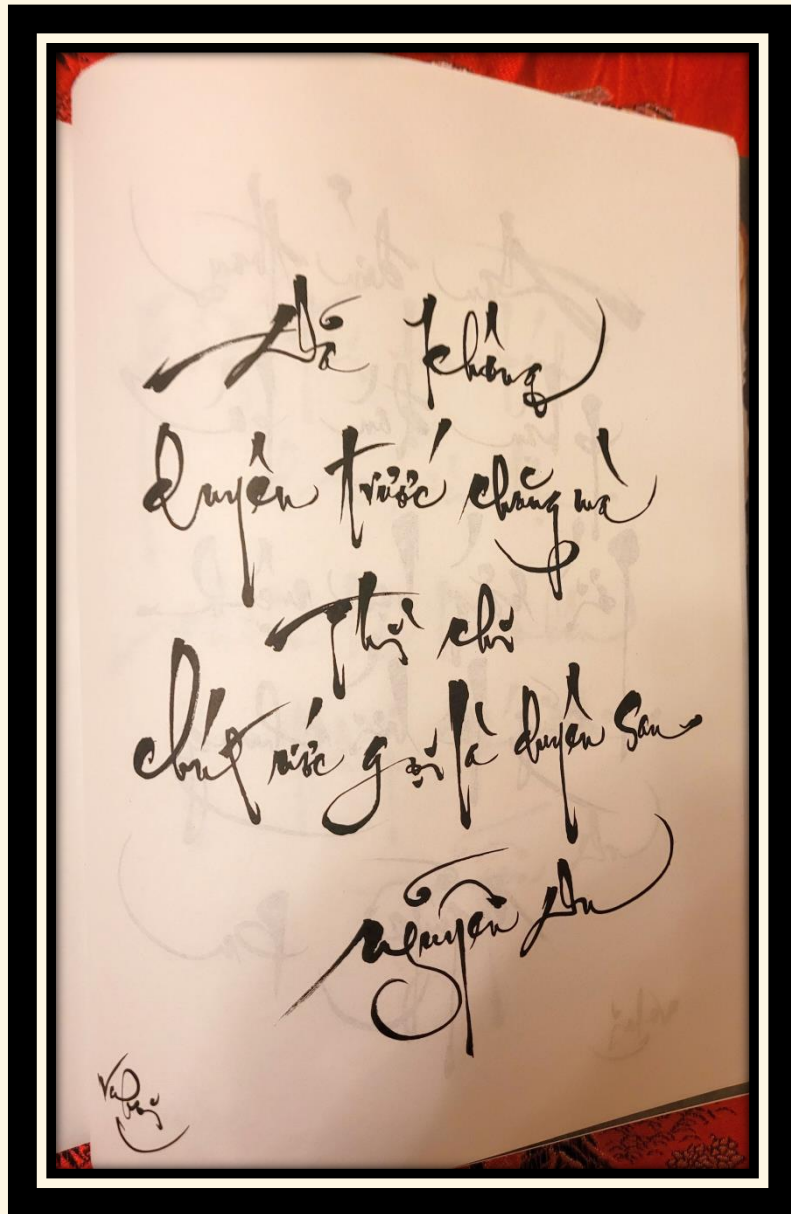 Đã không
duyên trước chăng mà
Thì chi
chút ước gọi là duyên sau
Nguyễn Du